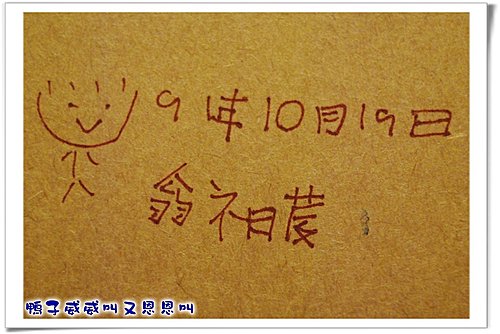 9年10月19日
翁
鴨子威威叫又恩恩叫